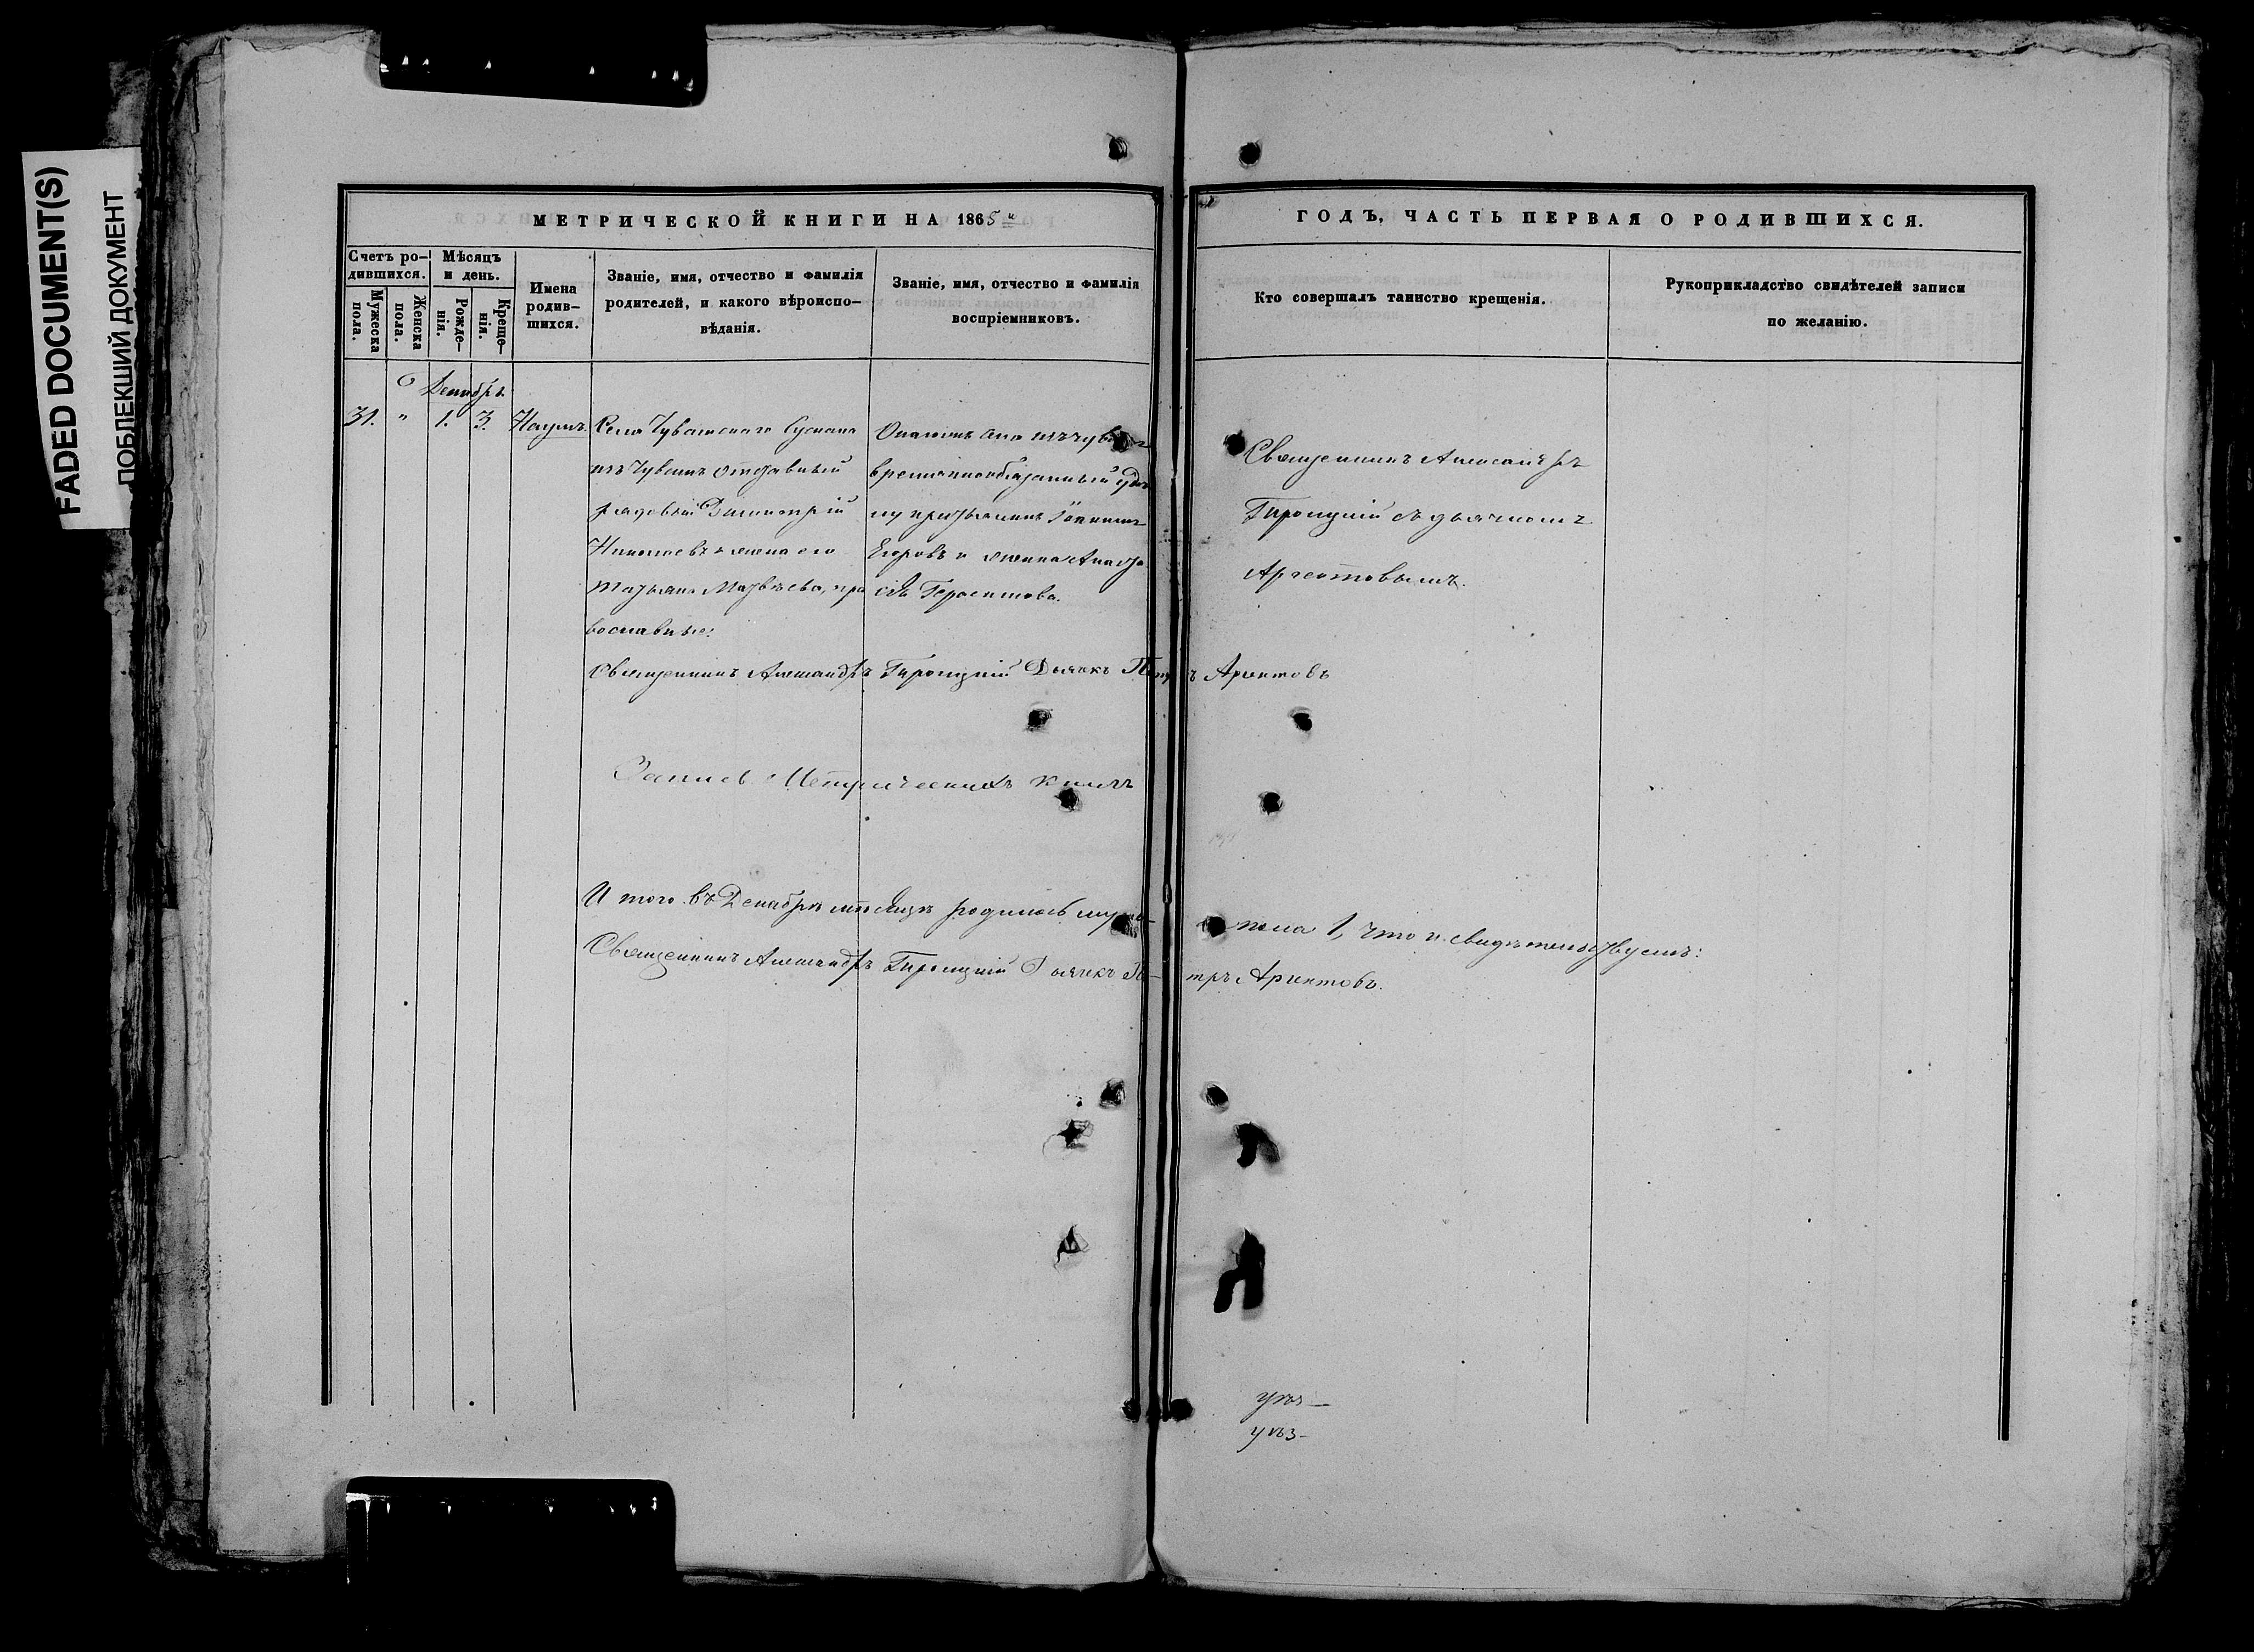 FADED DOCUMENT(S)
ПОБЛЕКШИЙ ДОКУМЕНТ
МЕТРИЧЕСКОЙ КНИГИ НА 1865й
ГОДЪ, ЧАСТЬ ПЕРВАЯ О РОДИВШИХСЯ.
Счетъ ро-
дившихся.
Мужеска
пола.
Женска
пола.
Мѣсяцъ
и день.
Рожде-
нія.
Креще-
нія.
Имена
родив-
шихся.
Званіе, имя, отчество и фамилія
родителей, и какого вѣроиспо-
вѣданія.
Званіе, имя, отчество и фамилія
воспріемниковъ.
Кто совершалъ таинство крещенія.
Рукоприкладство свидѣтелей записи
по желанію.
Декабрь.
31. " 1. 3. Наумъ.
Села Чувашскаго
изъ Чувашъ отставный
рядовой Димитрій
Николаевъ и жена его
Татьяна Матвѣева, пра
вославные:
изъ чувашъ
временнообязанный
Егоровъ и Анаста
сія Герасимова.
Священникъ Александръ
Троицкій съ дьячкомъ
Аристовымъ.
Священникъ Александръ Троицкій Дьячекъ Петръ Аристовъ
Запись Метрическихъ книгъ
И того въ Декабрѣ мѣсяцѣ родилось муже-
пола 1, что и свидѣтельствуемъ:
Священникъ Александръ Троицкій Дьячекъ Пе-
тръ Аристовъ.